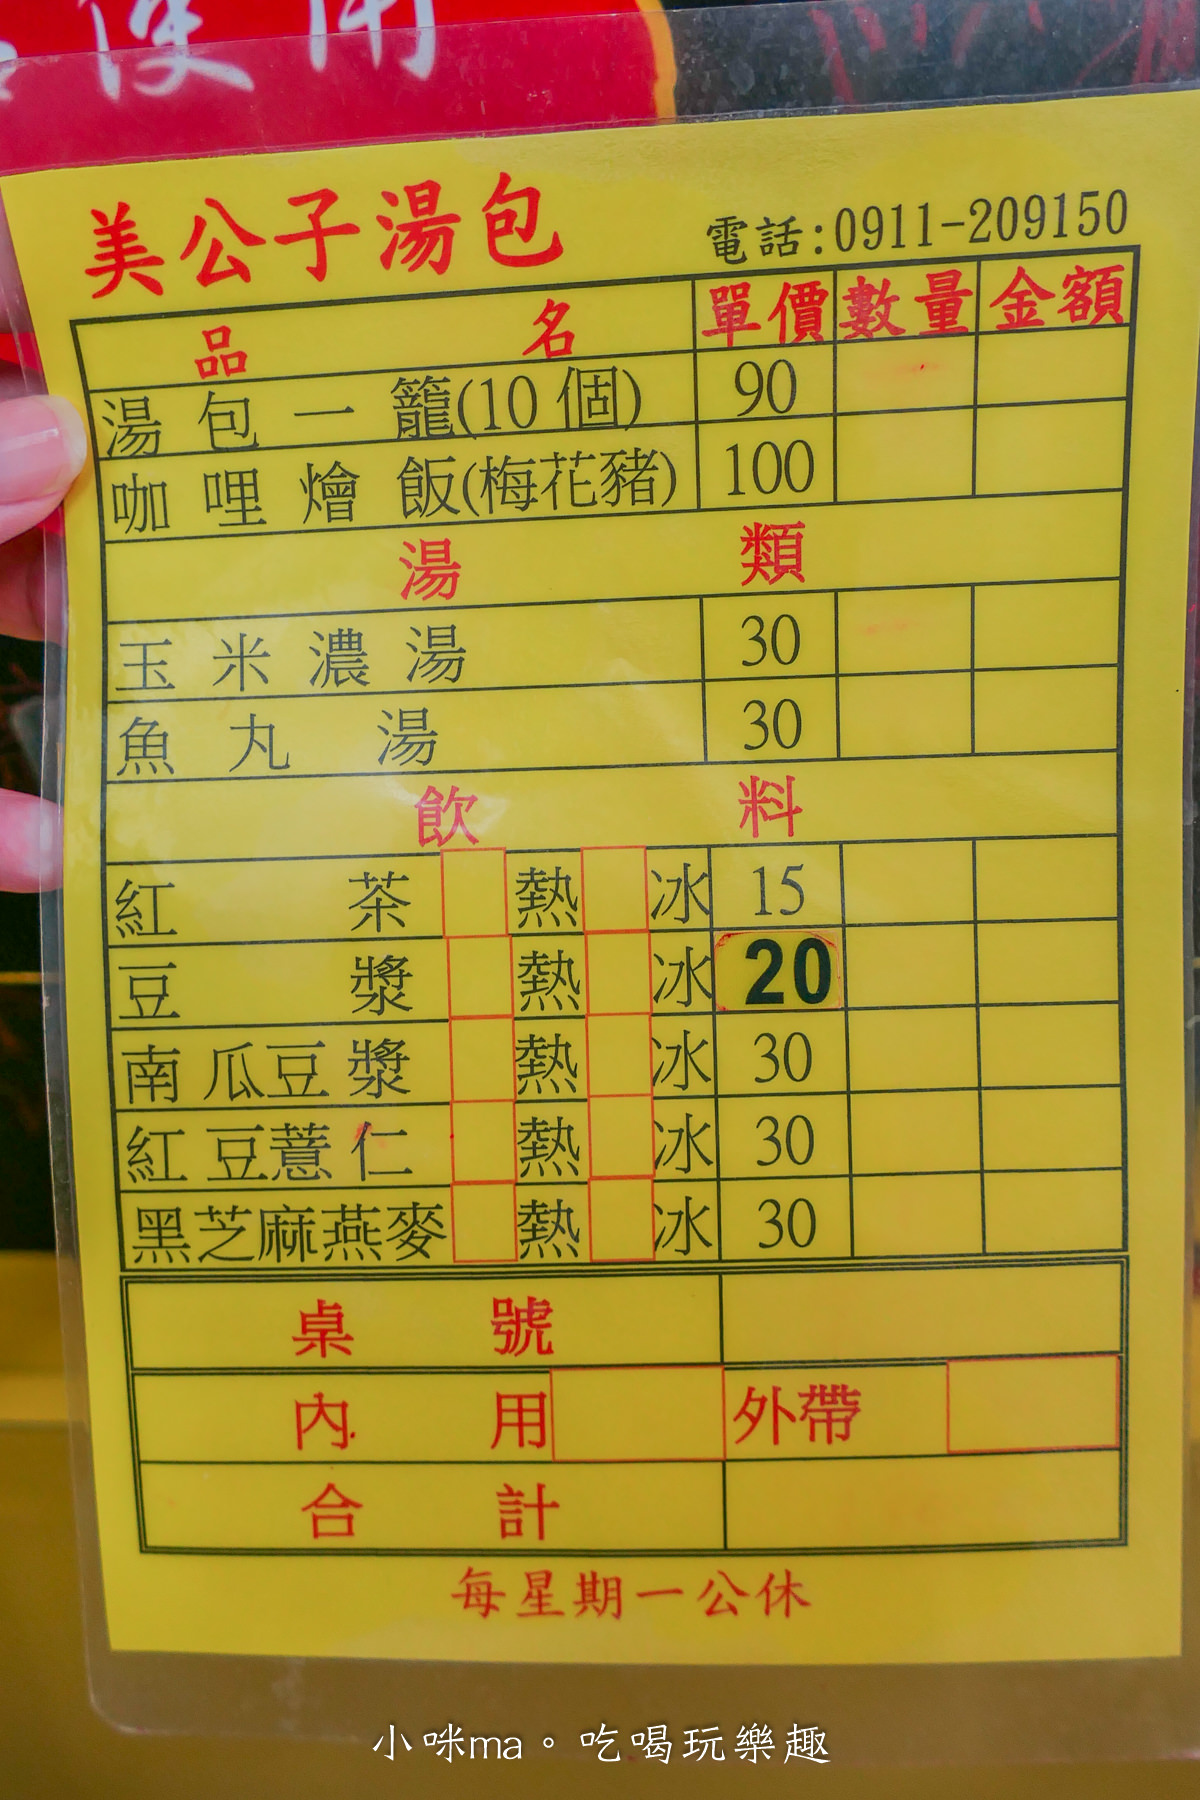 使用
美公子湯包
電話:0911-209150
品名 單價 數量 金額
湯包一籠(10個) 90
咖哩燴飯(梅花豬) 100
湯類
玉米濃湯 30
魚丸湯 30
飲料
紅茶 熱 冰 15
豆漿 熱 冰 20
南瓜豆漿 熱 冰 30
紅豆薏仁 熱 冰 30
黑芝麻燕麥 熱 冰 30
桌號
內用 外帶
合計
每星期一公休
小咪ma。吃喝玩樂趣